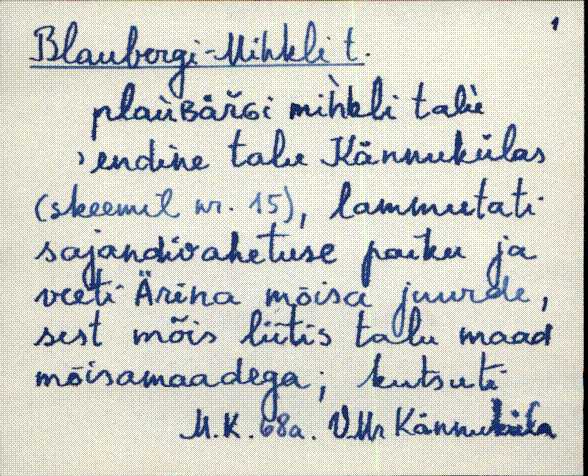 1
Blaubergi-Mihkli t.
plaùʙäřɢi mìhkli talù
, endine talu Kännukülas
(skeemil nr. 15), lammutati
sajandivahetuse paiku ja
veeti Ärina mõisa juurde,
sest mõis liitis talu maad
mõisamaadega; kutsuti
M.K. 68a. VMr Kännuküla